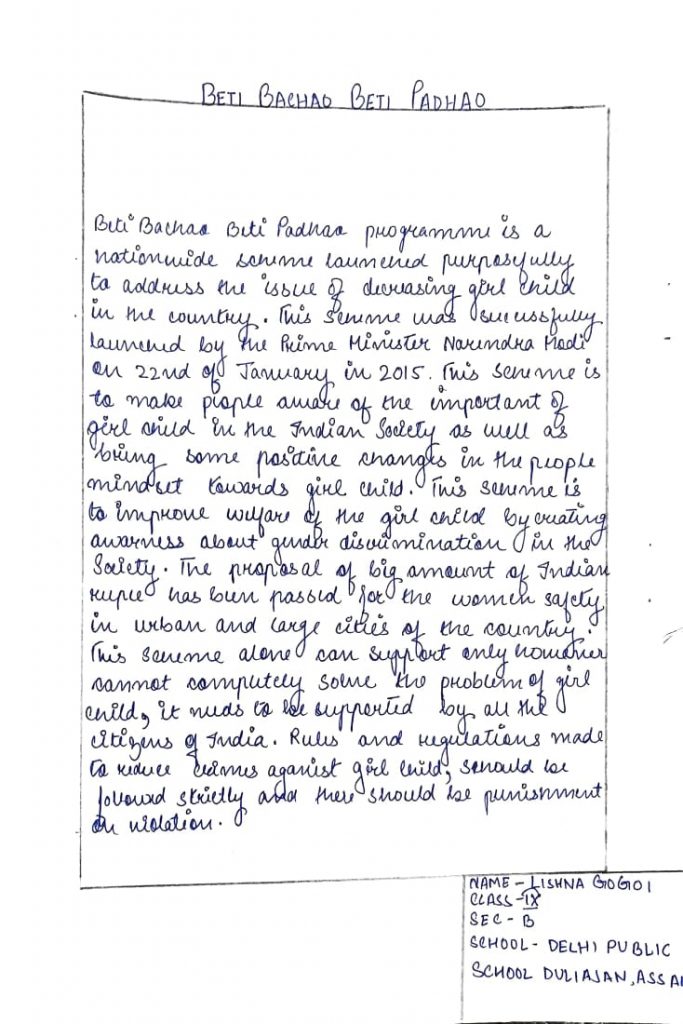 BETI BACHAO BETI PADHAO
Beti Bachao Beti Padhao programme is a
nationwide scheme launched purposfully
to address the issue of decreasing girl child
in the country. This scheme was successfully
launched by the Prime Minister Narendra Modi
on 22nd of January in 2015. This scheme is
to make people aware of the important of
girl child in the Indian Society as well as
bring some positive changes in the people
mindset towards girl child. This scheme is
to improve welfare of the girl child by creating
awarness about gender discrimination in the
Society. The proposal of big amount of Indian
rupee has been passed for the women safety
in urban and large cities of the country.
This scheme alone can support only however
cannot completely solve the problem of girl
child, it needs to be supported by all the
citizens of India. Rules and regulations made
to reduce crimes aganist girl child, should be
followed strictly and there should be punishment
on violation.
NAME - LISHNA GOGOI
CLASS - IX
SEC - B
SCHOOL - DELHI PUBLIC
SCHOOL DULIAJAN, ASSA